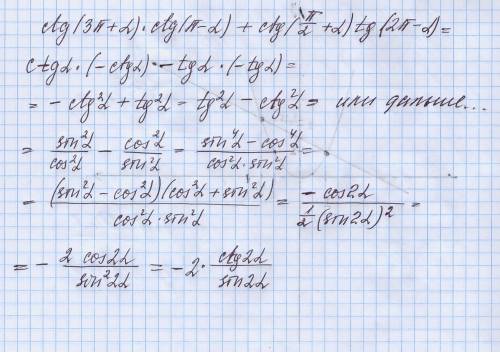 ctg(3π+α)·ctg(π-α) + ctg(π/2+α)tg(2π-α)=
ctgα·(-ctgα) - tgα·(-tgα)=
= -ctg²α + tg²α = tg²α - ctg²α = или дальше...
= sin²α/cos²α - cos²α/sin²α = (sin⁴α - cos⁴α)/(cos²α·sin²α) =
= (sin²α - cos²α)(cos²α + sin²α)/(cos²α·sin²α) = -cos2α/(½(sin2α)²) =
= - 2cos2α/sin²2α = -2·ctg2α/sin2α